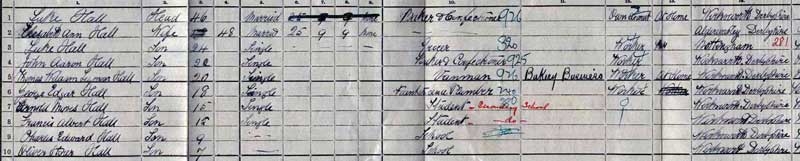 1 Luke Hall Head 46 Married Baker & Confectioner 926 Own Account At Home Wirksworth Derbyshire
2 Elizabeth Ann Hall Wife 48 Married 25 9 9 none Derbyshire
3 Luke Hall Son 24 Single Grocer 320 Worker Nottingham 281
4 John Aaron Hall Son 22 Single Baker & Confectioner 925 Worker Wirksworth Derbyshire
5 Hall Son 20 Single Vanman 926 Bakery Business Worker At Home Wirksworth Derbyshire
6 George Edgar Hall Son 18 Single Plumber Worker Wirksworth Derbyshire
7 Moses Hall Son 15 Single Student - Secondary School Wirksworth Derbyshire
8 Francis Albert Hall Son 15 Single Student - do - Wirksworth Derbyshire
9 Charles Edward Hall Son 9 School Wirksworth Derbyshire
10 Oliver Hall Son 7 School Wirksworth Derbyshire